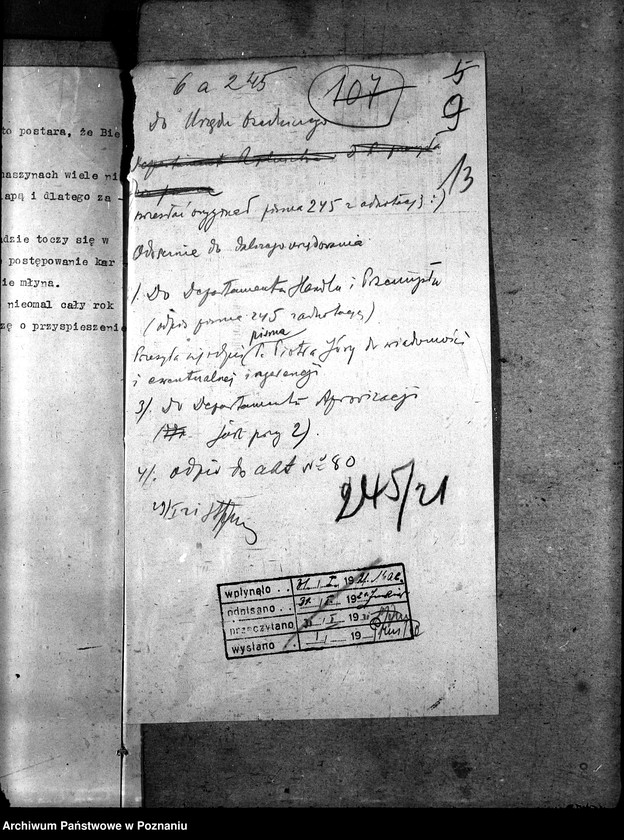 to postara, że Bie
naszynach wiele ni
apą i dlatego za -
dzie toczy się w
postępowanie kar
ie młyna.
nieomal cały rok
zę o przyspieszenie
6 a 245
107
5
9
13
do Urzędu
przesłać oryginał pisma 245 z adnotacją :)
Odpisanie do dalszego urzędowania
1. Do Departamentu Handlu i Przemysłu
(odpis pisma 245 z adnotacją)
pisma
Przesyła się odpis P. Piotra Jóry do wiadomości
i ewentualnej ingerencji
3/. do Departamentu Aprowizacji
(jak przy 2).
4/. odpis do akt № 80
29/I 21
245/21
wpłynęło . . 31. I. 19 21.
odpisano . . 31. I. 19
przeczytano 31. I. 19 21
wysłano . . 19
Archiwum Państwowe w Poznaniu